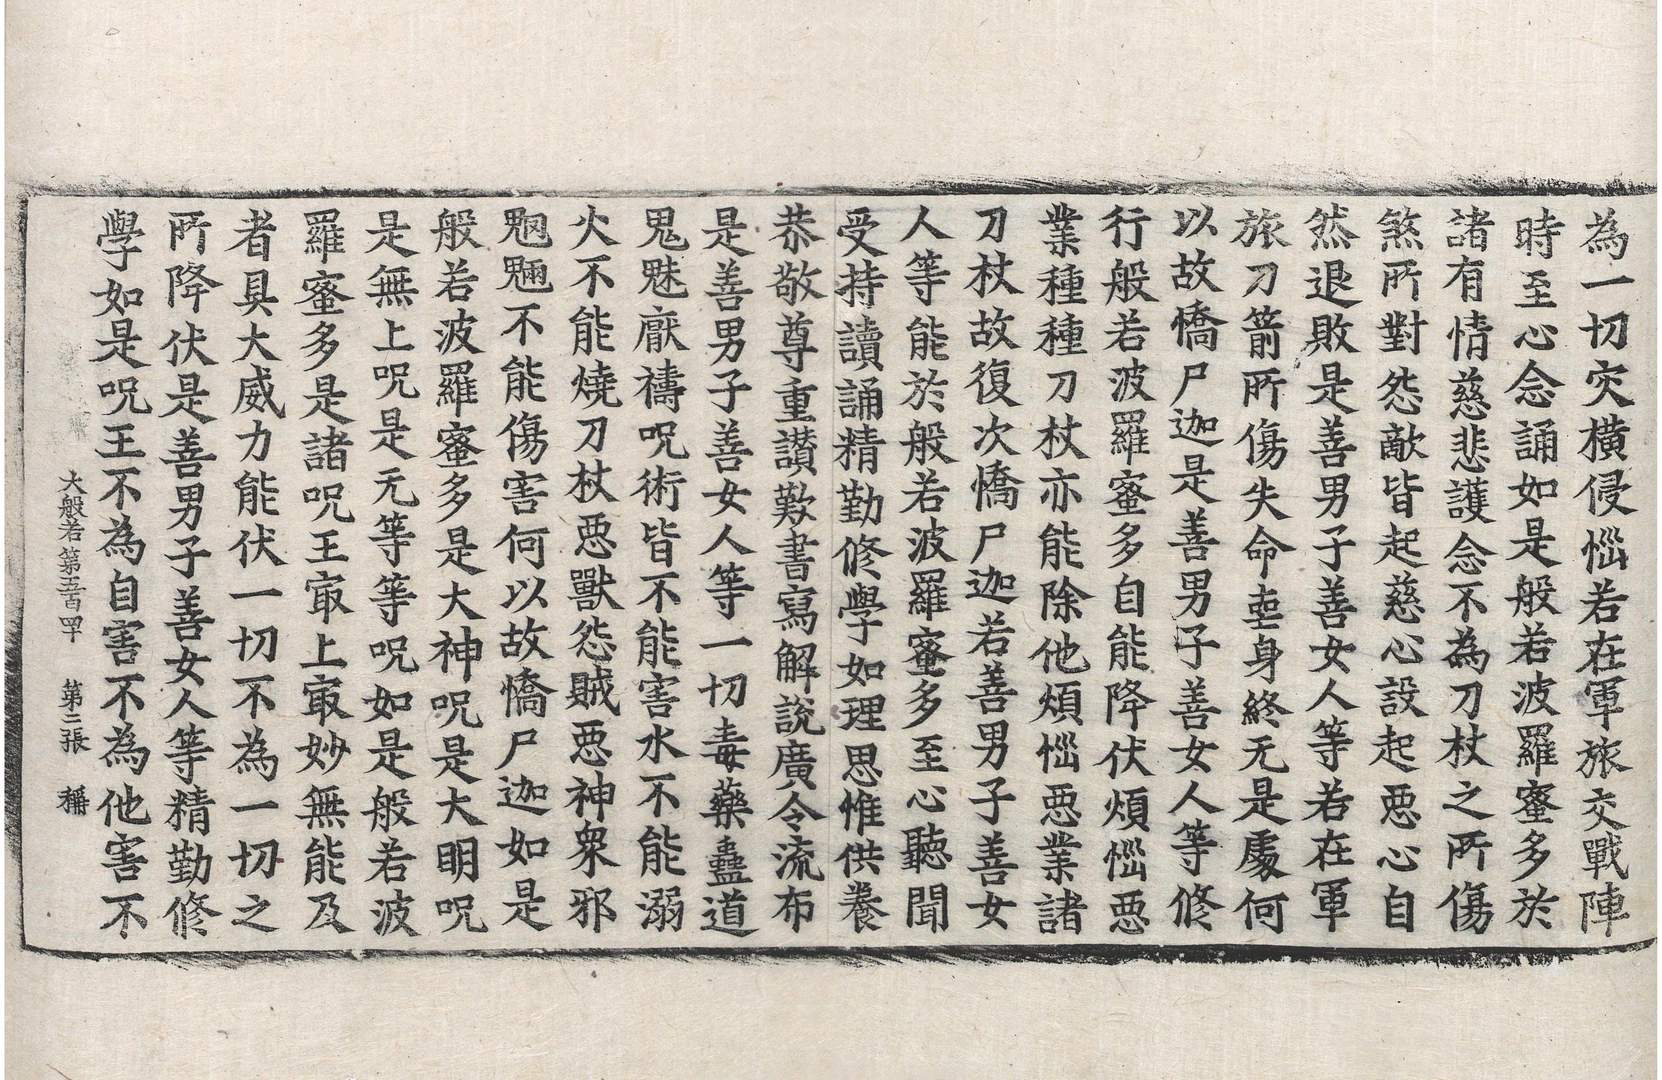 為一切灾横侵惱若在軍旅交戰陣
時至心念誦如是般若波羅蜜多於
諸有情慈悲護念不為刀杖之所傷
煞所對怨敵皆起慈心設起惡心自
然退敗是善男子善女人等若在軍
旅刀箭所傷失命喪身終无是處何
以故憍尸迦是善男子善女人等修
行般若波羅蜜多自能降伏煩惱惡
業種種刀杖亦能除他煩惱惡業諸
刀杖故復次憍尸迦若善男子善女
人等能於般若波羅蜜多至心聽聞
受持讀誦精勤修學如理思惟供養
恭敬尊重讃歎書寫解說廣令流布
是善男子善女人等一切毒藥蠱道
鬼魅厭禱呪術皆不能害水不能溺
火不能燒刀杖惡獸怨賊惡神衆邪
魍魎不能傷害何以故憍尸迦如是
般若波羅蜜多是大神呪是大明呪
是無上呪是无等等呪如是般若波
羅蜜多是諸呪王冣上冣妙無能及
者具大威力能伏一切不為一切之
所降伏是善男子善女人等精勤修
學如是呪王不為自害不為他害不
大般若第五百四十 第二張 稱